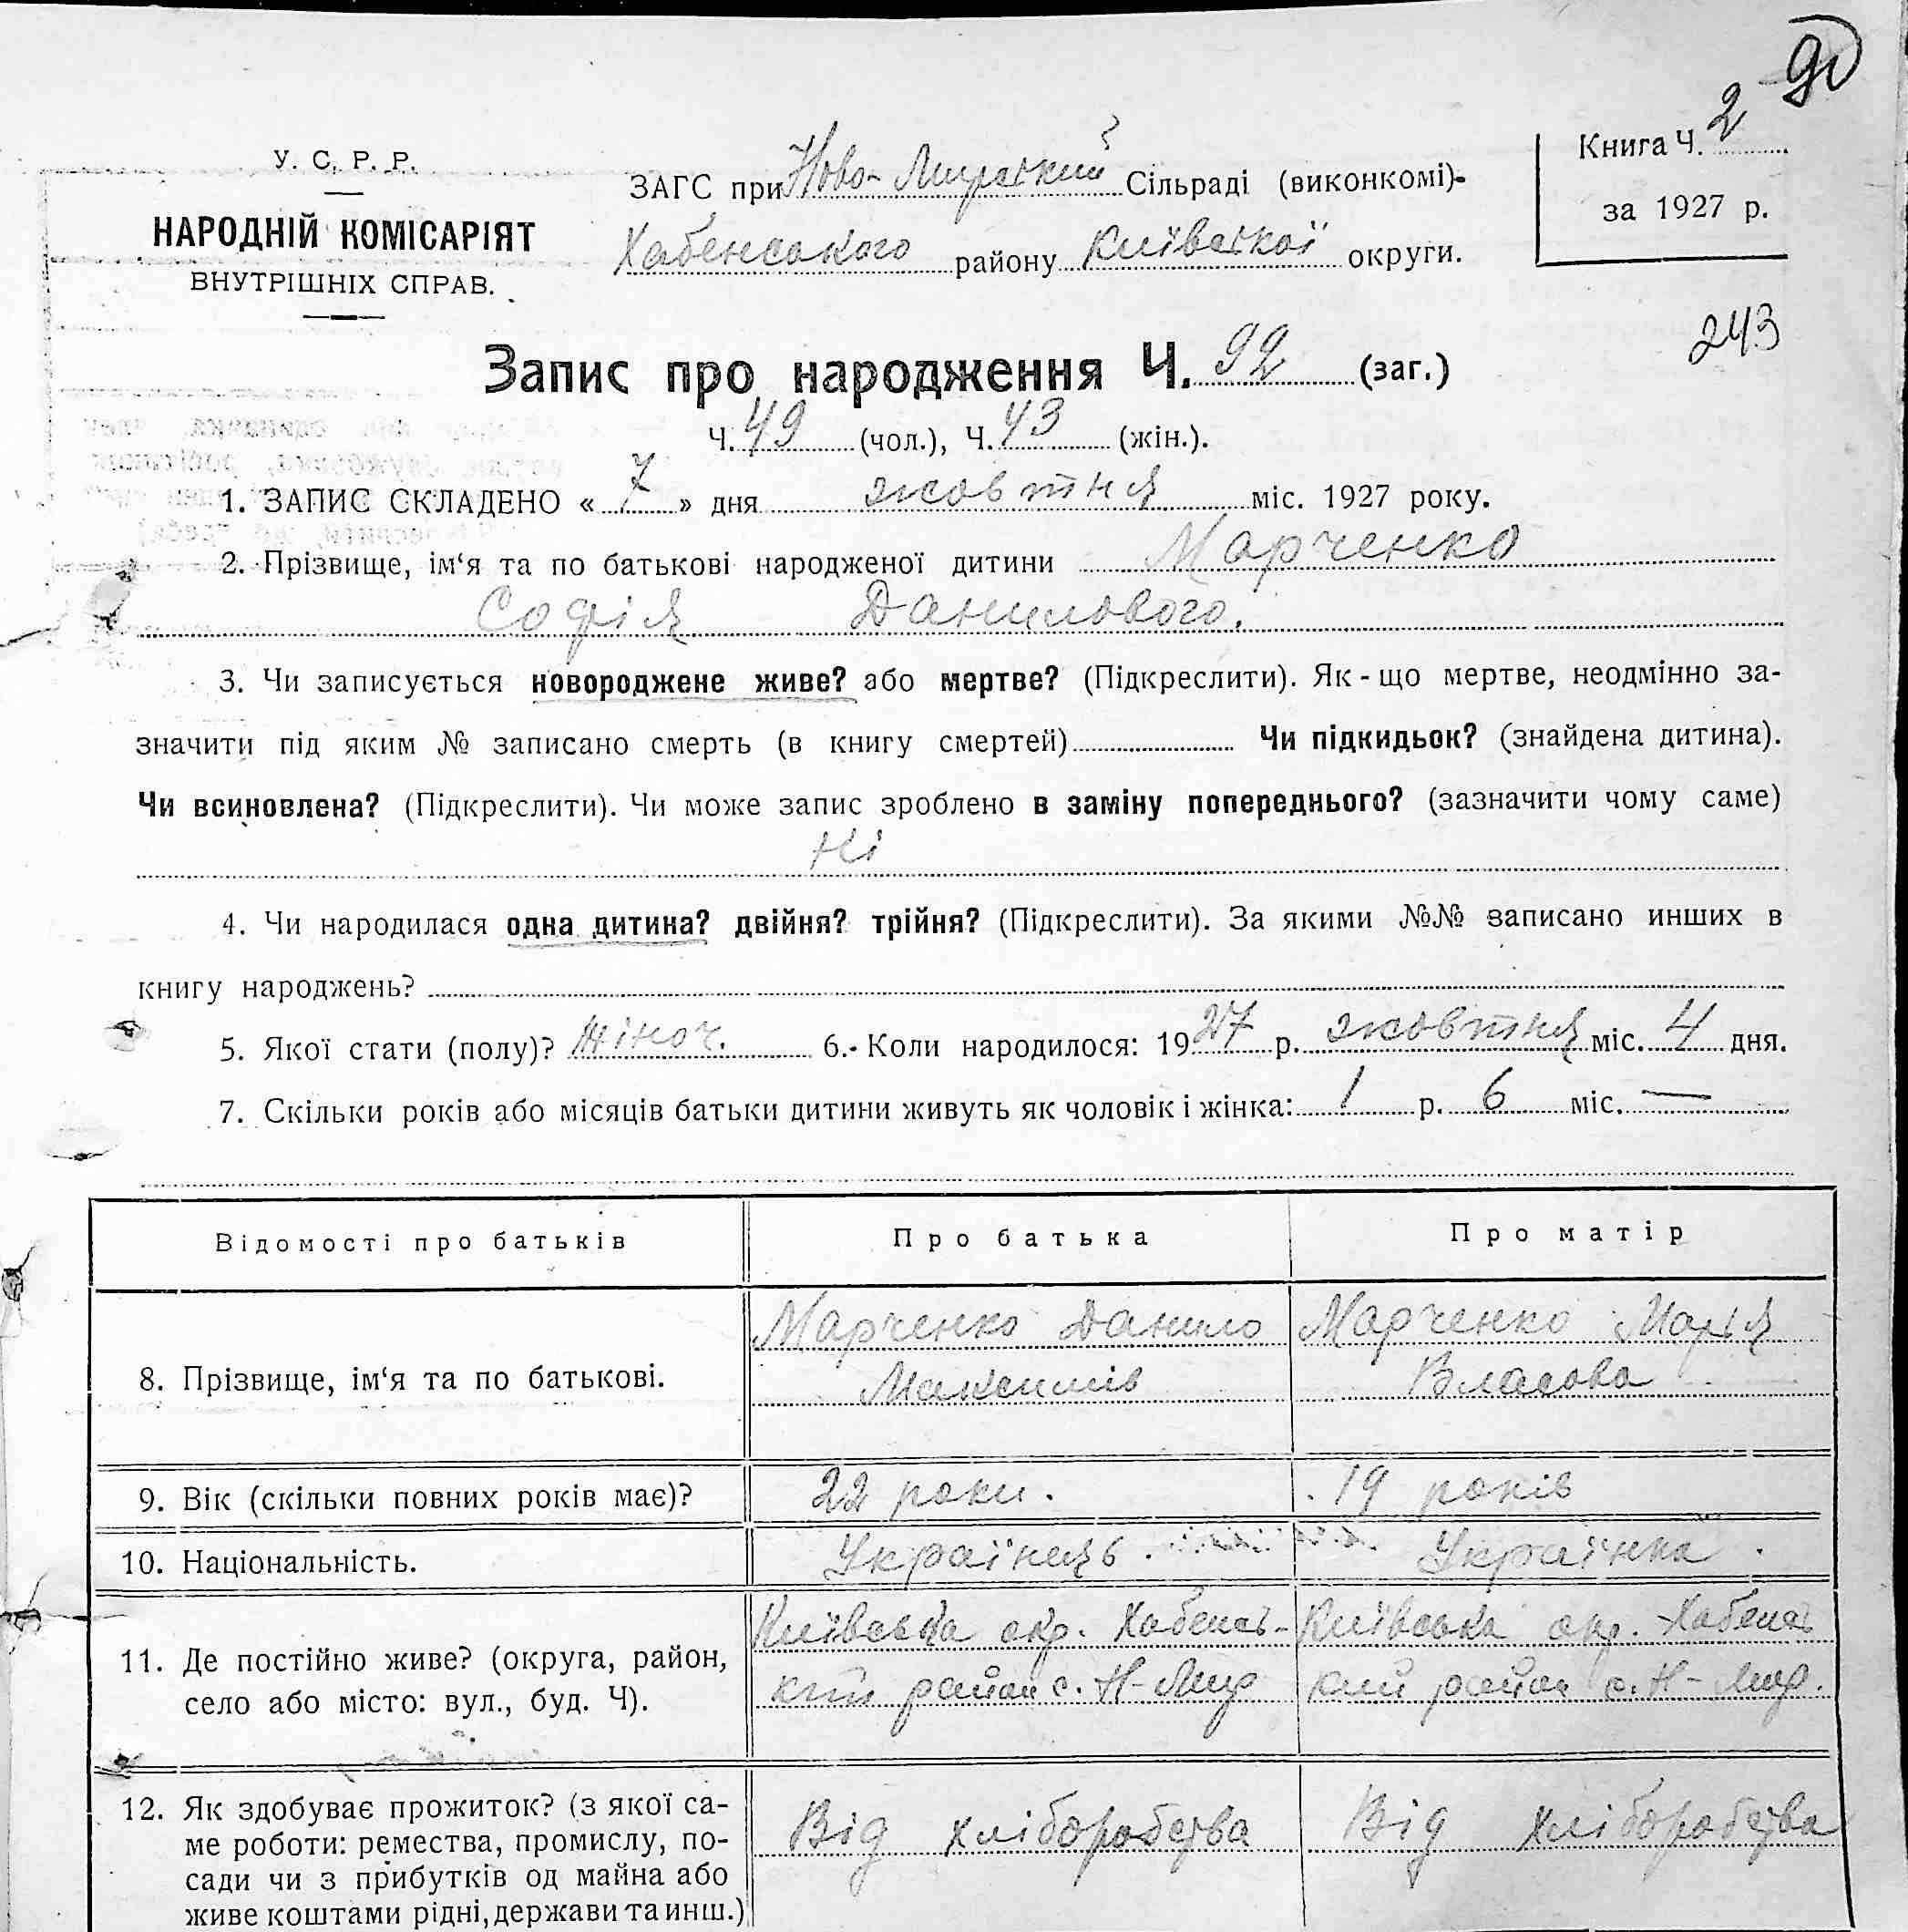 90
У. С. Р. Р.
НАРОДНІЙ КОМІСАРІЯТ
ВНУТРІШНІХ СПРАВ.
ЗАГС при Ново-Мирський Сільраді (виконкомі)-
Хабенського району Київської округи.
Книга Ч. 2
за 1927 р.
243
Запис про народження Ч. 92 (заг.)
Ч. 49 (чол.), Ч. 43 (жін.).
1. ЗАПИС СКЛАДЕНО « 7 » дня жовтня міс. 1927 року.
2. Прізвище, ім‘я та по батькові народженої дитини Марченко
Софія Данилового.
3. Чи записується новороджене живе? або мертве? (Підкреслити). Як-що мертве, неодмінно за-
значити під яким № записано смерть (в книгу смертей) Чи підкидьок? (знайдена дитина).
Чи всиновлена? (Підкреслити). Чи може запис зроблено в заміну попереднього? (зазначити чому саме)
Ні
4. Чи народилася одна дитина? двійня? трійня? (Підкреслити). За якими №№ записано инших в
книгу народжень?
5. Якої стати (полу)? жіноч. 6. Коли народилося: 1927 р. жовтня міс. 4 дня.
7. Скільки років або місяців батьки дитини живуть як чоловік і жінка: 1 р. 6 міс. —
Відомості про батьків Про батька Про матір
8. Прізвище, ім‘я та по батькові.
Марченко Данило
Максимів
Марченко Марія
Власова
9. Вік (скільки повних років має)? 22 роки. 19 років
10. Національність. Українець. Українка.
11. Де постійно живе? (округа, район,
село або місто: вул., буд. Ч).
Київська окр. Хабенсь-
кий район с. Н-Мир
Київська окр. Хабенсь
кий район с. Н-Мир.
12. Як здобуває прожиток? (з якої са-
ме роботи: ремества, промислу, по-
сади чи з прибутків од майна або
живе коштами рідні, держави та инш.)
Від хліборобства
Від хліборобства